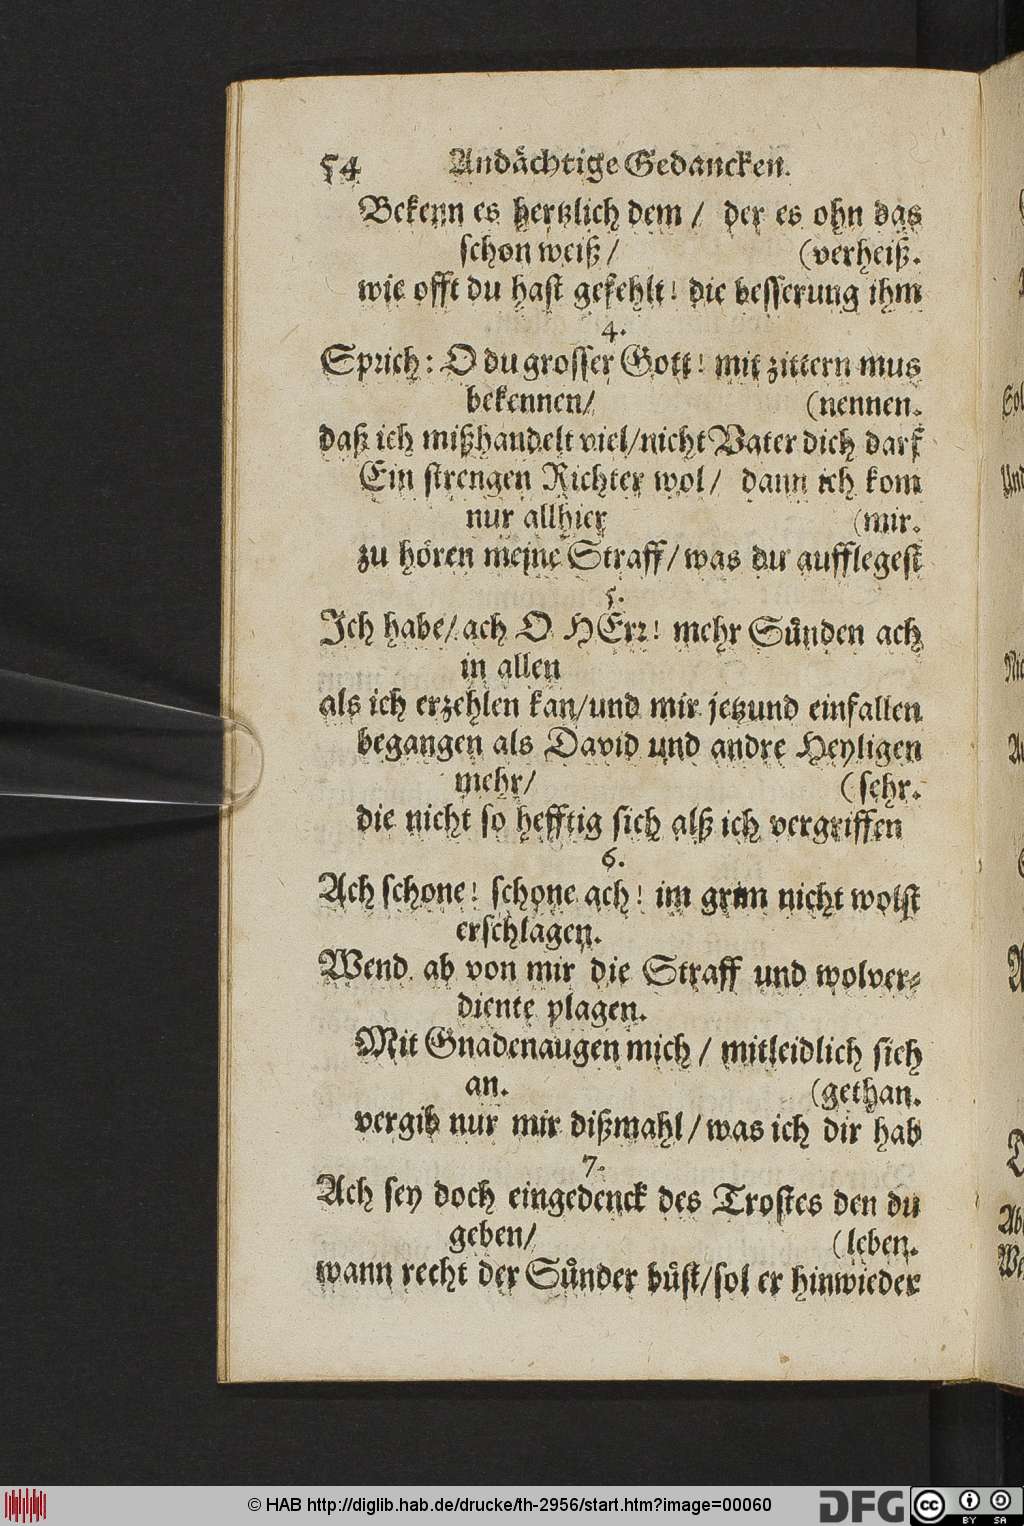 54 Andächtige Gedancken.
Bekenn es hertzlich dem / der es ohn das
schon weiß / (verheiß.
wie offt du hast gefehlt! die besserung ihm
4.
Sprich: O du grosser Gott! mit zittern mus
bekennen/ (nennen.
daß ich mißhandelt viel/nicht Vater dich darf
Ein strengen Richter wol / dann ich kom
nur allhier (mir.
zu hören meine Straff/was du aufflegest
5.
Ich habe/ach O HErr! mehr Sünden ach
in allen
als ich erzehlen kan/und mir jetzund einfallen
begangen als David und andre Heyligen
mehr/ (sehr.
die nicht so hefftig sich alß ich vergriffen
6.
Ach schone! schone ach! im grim nicht wolst
erschlagen.
Wend ab von mir die Straff und wolver-
diente plagen.
Mit Gnadenaugen mich / mitleidlich sich
an. (gethan.
vergib nur mir dißmahl/was ich dir hab
7.
Ach sey doch eingedenck des Trostes den du
geben/ (leben.
wann recht der Sünder büst/sol er hinwieder
© HAB http://diglib.hab.de/drucke/th-2956/start.htm?image=00060
DFG
cc BY SA